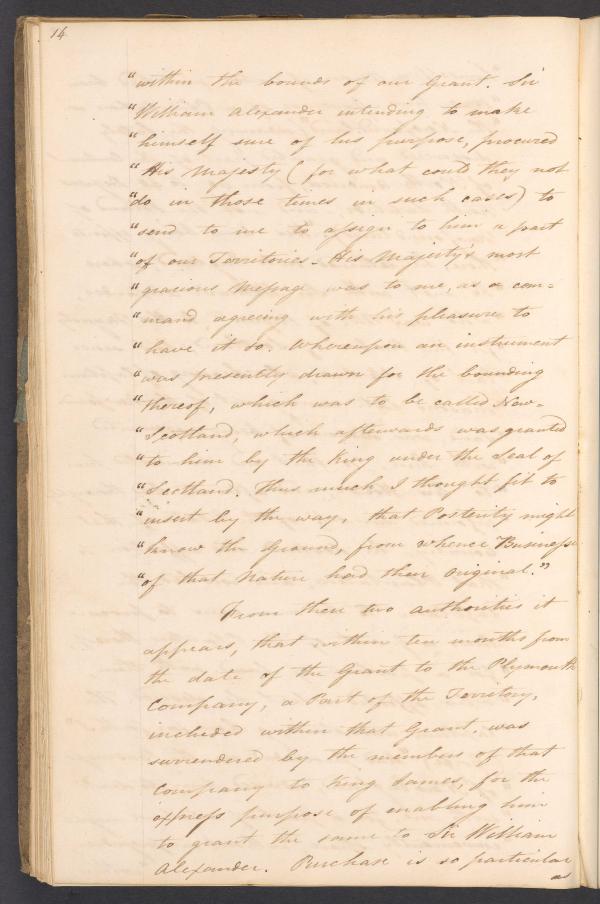 14
"within the bounds of our Grant. Sir
"William Alexander intending to make
"himself sure of his purpose, procured
"His Majesty (for what could they not
"do in those times in such cases) to
"send to me to assign to him a part
"of our Territories. His Majesty's most
"gracious Message was to me, as a com=
"mand agreeing with his pleasure to
"have it so. Whereupon an instrument
"was presently drawn for the bounding
"thereof, which was to be called New=
"Scotland, which afterwards was granted
"to him by the King under the Seal of
"Scotland. Thus much I thought fit to
"insert by the way, that Posterity might
"know the Ground, from whence Business
"of that nature had their original."
From these two authorities it
appears, that within ten months from
the date of the Grant to the Plymouth
Company, a Part of the Territory,
included within that Grant, was
surrendered by the members of that
Company to King James, for the
express purpose of enabling him
to grant the same to Sir William
Alexander. Purchase is so particular
as